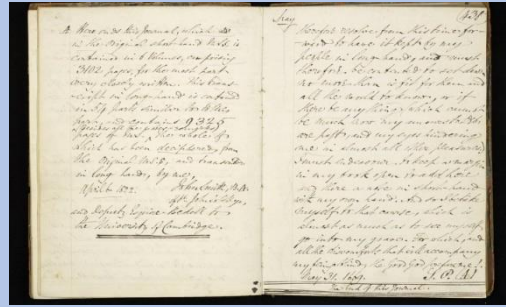 Here ends this Journal, which
in the original short-hand M.S. is
contained in 6 Volumes, comprising
pages, for the most part
very closely written. This trans-
in long-hand is contained
in 54 parts similar to this
and contains 9325
pages the whole of
which has been deciphered, from
the original M.S., and
in long hand, by me,
April 1822. John Smith,
of St. John's
and Deputy Esquire-Bedell to
the University of Cambridge.
May
therefore resolve from this time for-
ward to have it kept by my
people in long-hand, and must
therefore be contented to set down
no more than is fit for them and
all the world to know; or if
there be any thing, which cannot
be much, now my
are past, and my eyes hindering
me in almost all other pleasures,
I must endeavour to keep a margin
in my book open, to add here
and there a note in short-hand
with my own hand. And so I betake
myself to that course, which is
almost as much as to see myself
go into my grave: for which, and
all the discomforts that will accompany
my being blind, the good God prepare me!
May 31. 1669. S. P.
The End of the Journal.